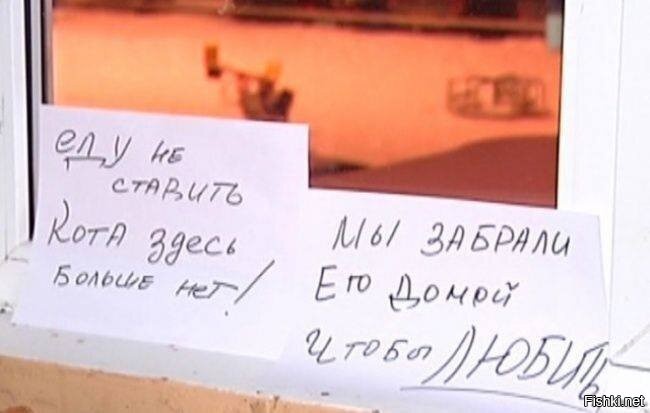 еду не
ставить
Кота здесь
больше нет!
Мы ЗАБРАЛИ
Его домой
Чтобы ЛЮБИТЬ
Fishki.net